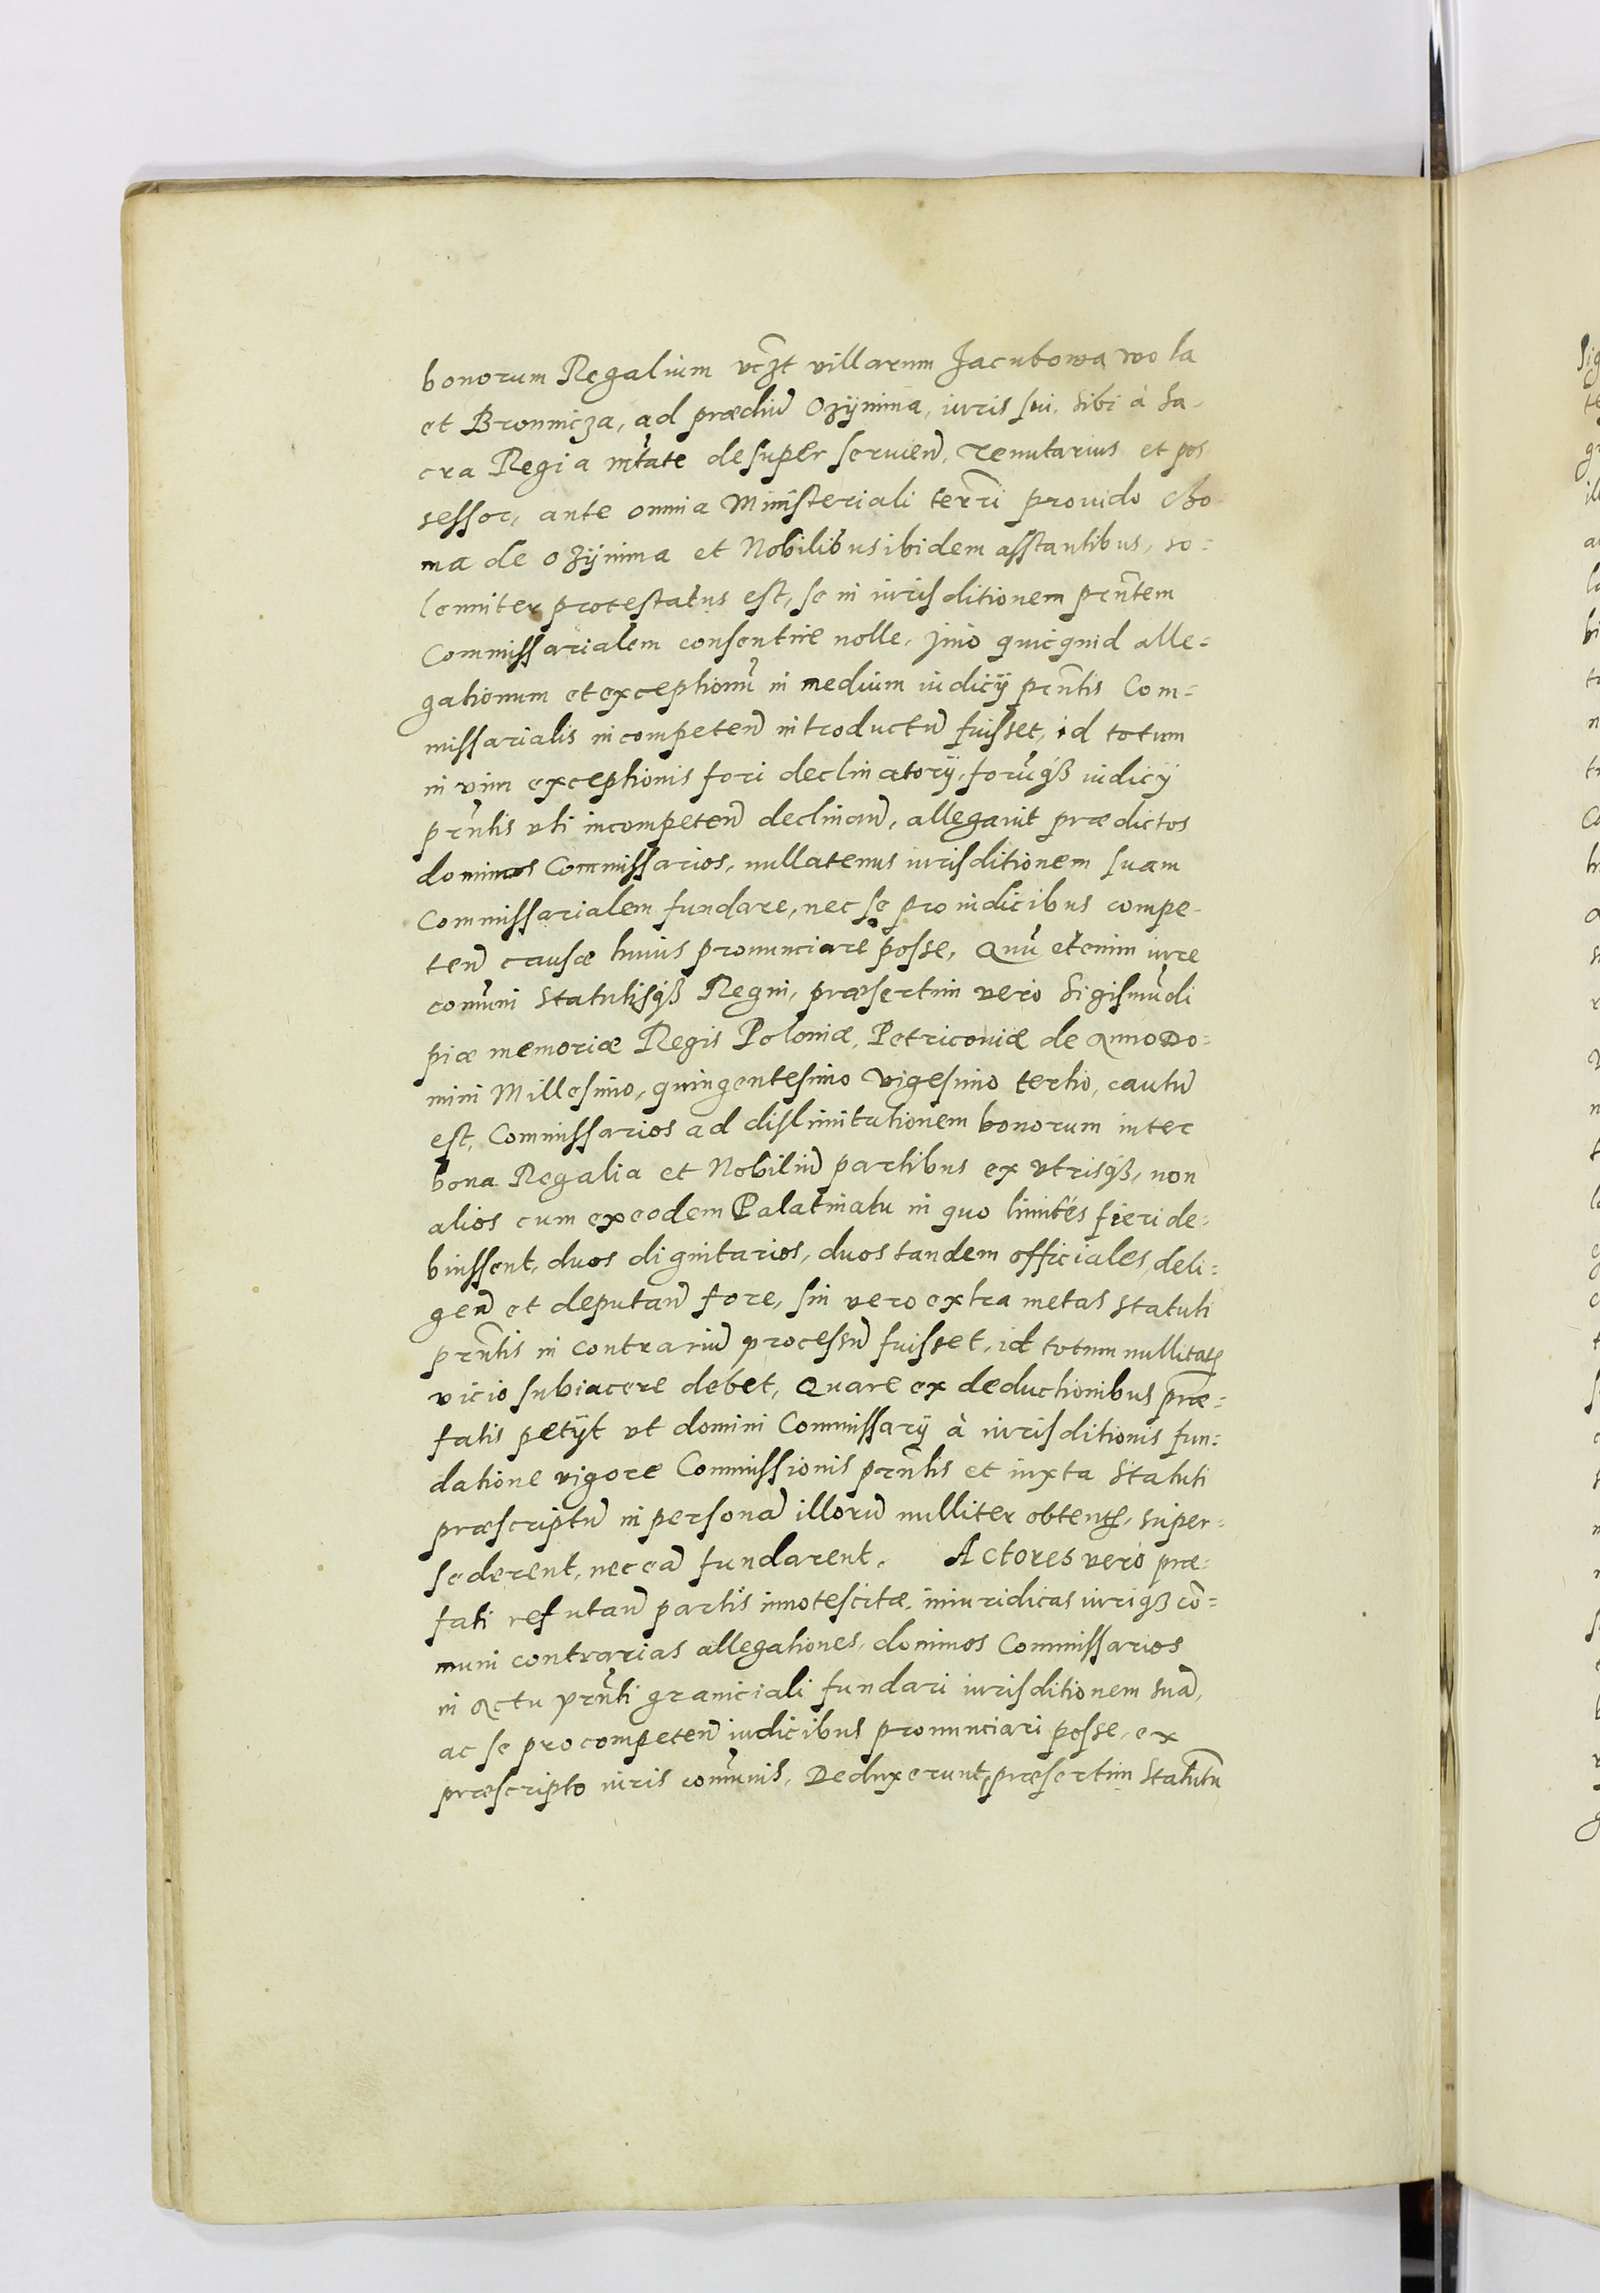 bonorum Regalium vczt villarum Jacubowa wo la
et Bronnicza, ad prædiũ Ozÿmina, iuris sui, sibi à Sa-
cra Regia mtate desuper seruieñ, Tenutarius et pos
sessor, ante omnia Ministeriali terri prouido Cho
ma de Ozÿmina et Nobilibus ibidem asstantibus, so=
lenniter protestatus est, se in iurisditionem prñtem
Commissarialem consentire nolle, jmo quicquid alle=
gationum et exceptionũ in medium iudicÿ prñtis Com=
missarialis incompeteñ introductũ fuisset, id totum
in vim exceptionis fori declinatorÿ, forũqß iudicÿ
prñtis vti incompeteñ declinañ, allegauit prædictos
dominos Commissarios, nullatenus iurisditionem suam
Commissarialem fundare, nec se pro iudicibus compe-
teñ causæ huius pronunciare posse, Quũ etenim iure
comũni Statutisqß Regni, præsertim vero Sigismũdi
piæ memoriæ Regis Poloniæ, Petricouiæ de Anno Do=
mini Millesimo, quingentesimo Vigesimo tertio, cautũ
est, Commissarios ad dislimitationem bonorum inter
bona Regalia et Nobiliũ partibus ex vtrisqß, non
alios cum ex eodem Palatinatu in quo limites fieri de=
buissent, duos dignitarios, duos tandem officiales, deli=
geñ et deputañ fore, sin vero extra metas Statuti
prñtis in contrariũ processũ fuisset, id totum nullitatis
vicio subiacere debet, Quare ex deductionibus præ=
fatis petÿt vt domini Commissarÿ à iurisditionis fun=
datione vigore Commissionis prñtis et iuxta Statuti
præscriptũ in personã illorũ nulliter obtentę, super=
sederent, nec eã fundarent. Actores vero præ=
fati refutañ partis innotescitæ, iniuridicas iuriqß cõ=
muni contrarias allegationes, dominos Commissarios
in Actu prñti graniciali fundari iurisditionem suã,
ac se pro competeñ iudicibus pronunciari posse, ex
præscripto iuris comũnis, Deduxerunt, præsertim Statutũ